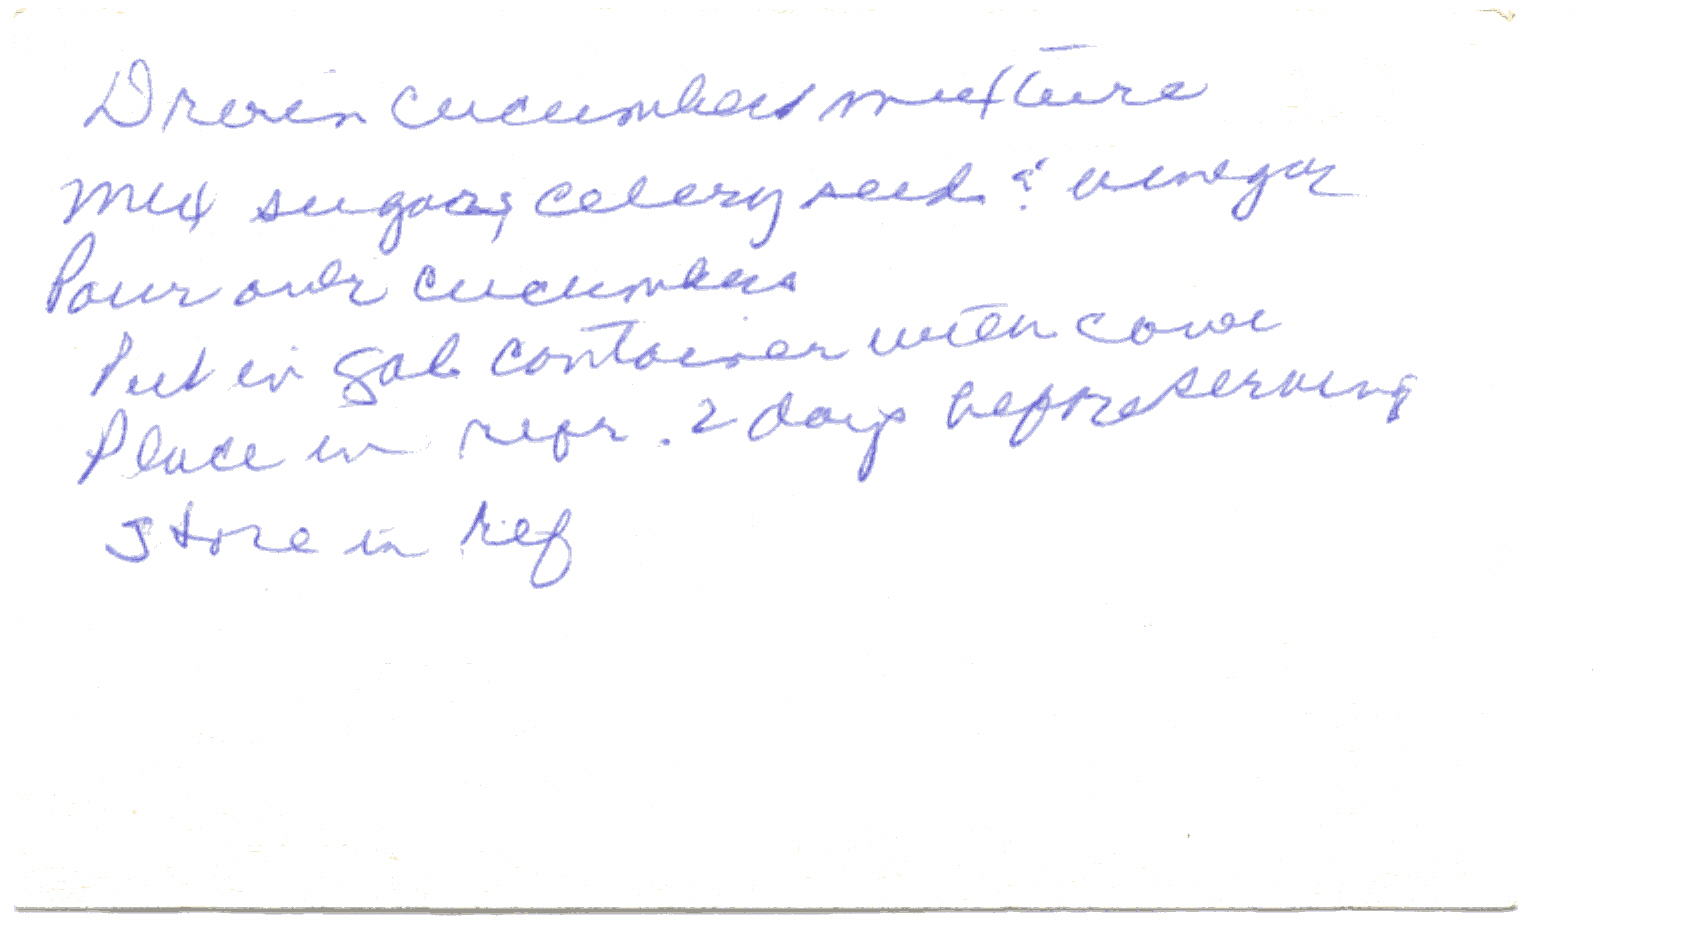 Drain cucumbers mixture
Mix sugar, celery seed & vinegar
Pour over cucumbers
Put in gal container with cover
Place in refr. 2 days before serving
Store in ref